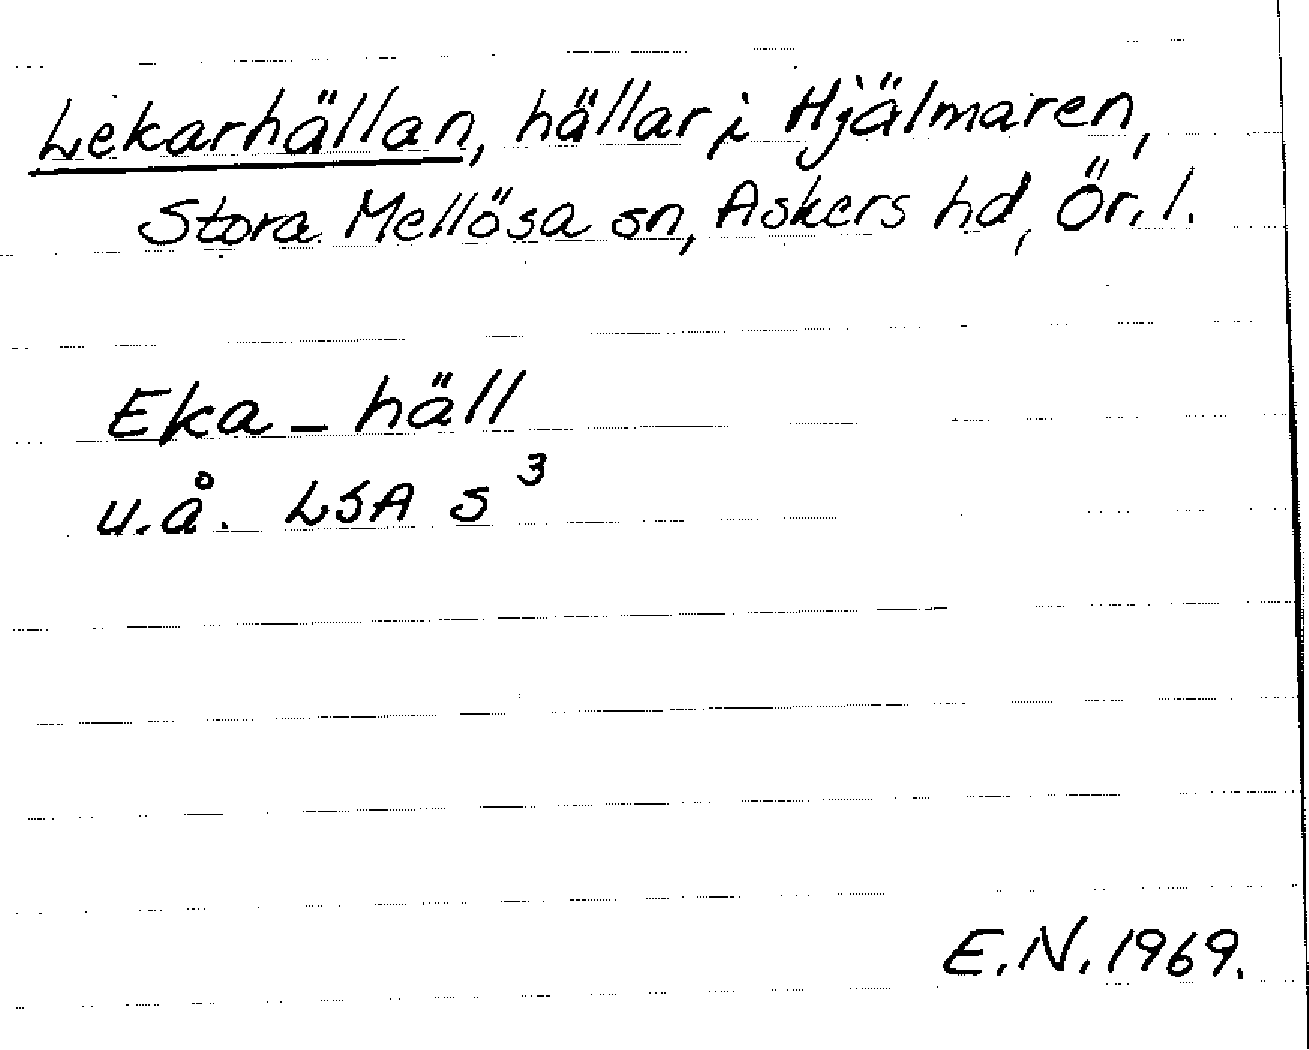 Lekarhällan, hällar i Hjälmaren,
Stora Mellösa sn, Askers hd, Ör. l.
Eka_häll
u.å. LSA s 3
E.N. 1969.